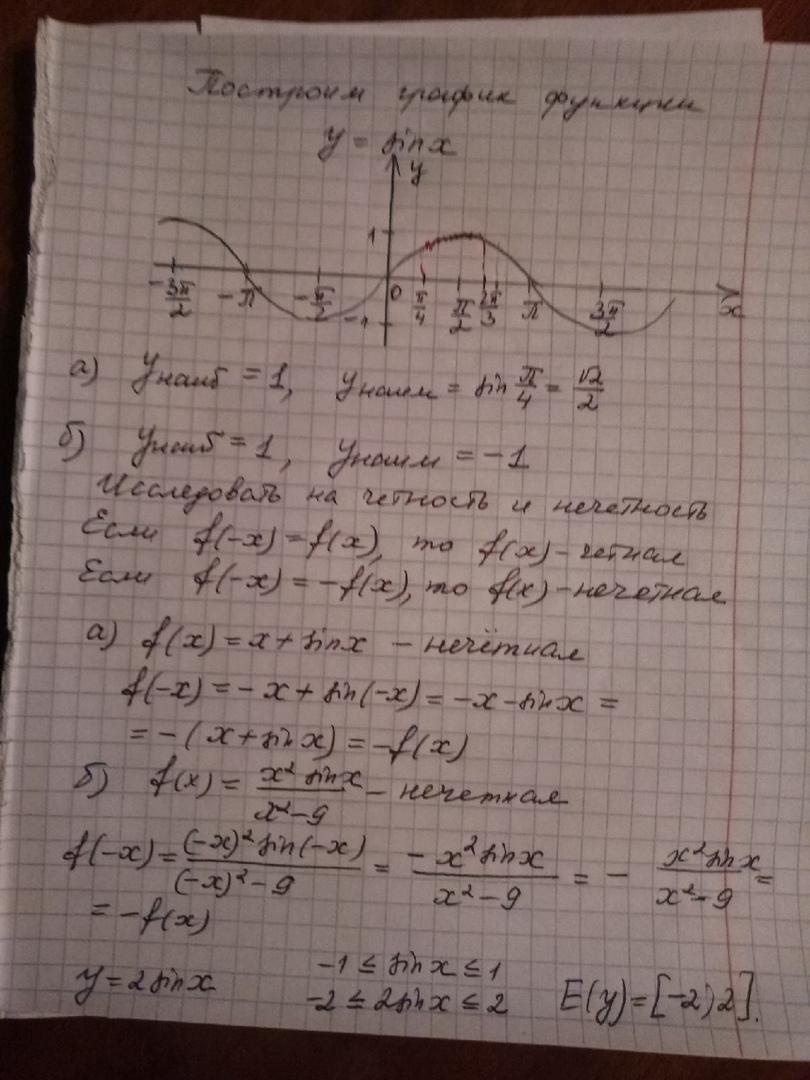 Построим график функции
y = sin x
y
1
-3π/2 -π -π/2 0 π/4 π/2 2π/3 π 3π/2 x
-1
а) Yнаиб = 1, Yнаим = sin π/4 = √2/2
б) Yнаиб = 1, Yнаим = -1
Исследовать на четность и нечетность
Если f(-x) = f(x), то f(x) - четная
Если f(-x) = -f(x), то f(x) - нечетная
а) f(x) = x + sin x - нечётная
f(-x) = -x + sin(-x) = -x - sin x =
= -(x + sin x) = -f(x)
б) f(x) = x² sin x / x² - 9 - нечетная
f(-x) = (-x)² sin(-x) / (-x)² - 9 = -x² sin x / x² - 9 = - x² sin x / x² - 9 =
= -f(x)
y = 2 sin x -1 ≤ sin x ≤ 1
-2 ≤ 2 sin x ≤ 2 E(y) = [-2; 2].